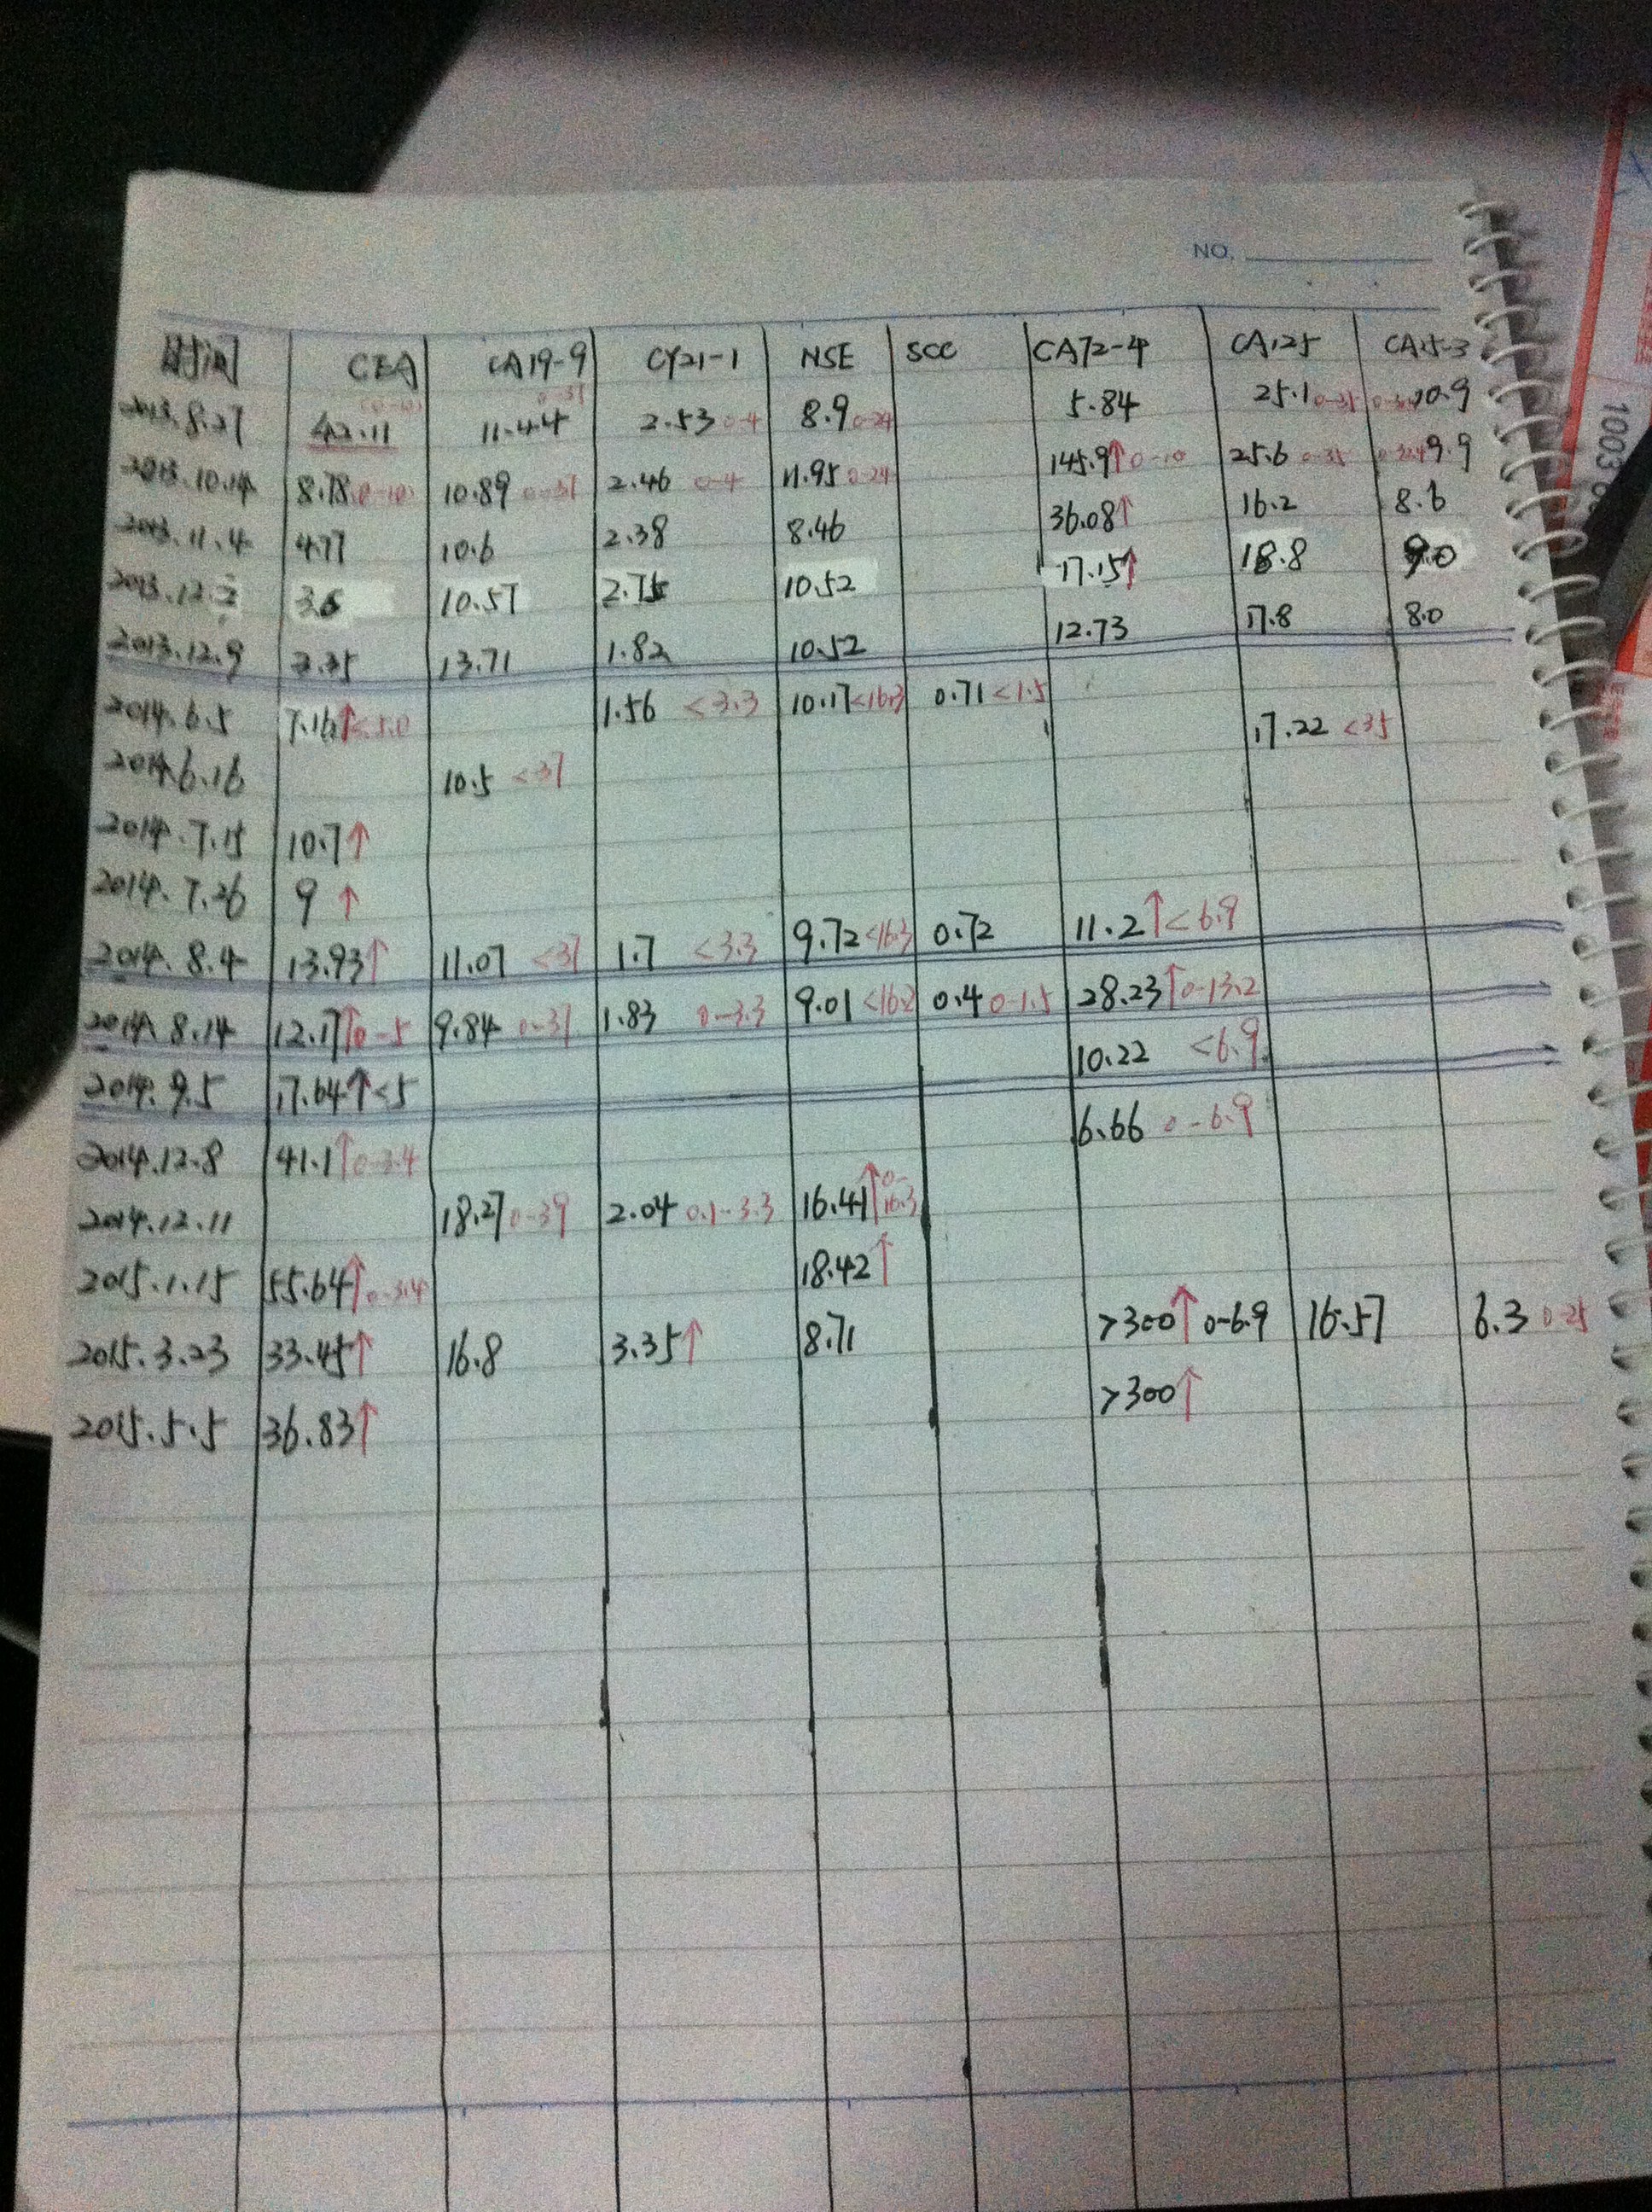 NO.
时间 CEA CA19-9 CY21-1 NSE SCC CA72-4 CA125 CA15-3
2013.8.27 42.11 (0-10) 11.44 0-37 2.53 0-4 8.9 0-24 5.84 25.1 0-35 10.9
2013.10.14 8.78 0-10 10.89 0-37 2.46 0-4 11.95 0-24 145.9↑ 0-10 25.6 0-35 9.9
2013.11.4 4.77 10.6 2.38 8.46 36.08↑ 16.2 8.6
2013.12.2 3.6 10.57 2.75 10.52 17.15↑ 18.8 9.0
2013.12.9 3.35 13.71 1.82 10.52 12.73 17.8 8.0
2014.6.5 7.16↑<5.0 1.56 <3.3 10.17<16.3 0.71<1.5
2014.6.16 10.5 <37 17.22 <35
2014.7.15 10.7↑
2014.7.26 9 ↑
2014.8.4 13.93↑ 11.07 <37 1.7 <3.3 9.72<16.3 0.72 11.2↑<6.9
2014.8.14 12.17↑0-5 9.84 0-37 1.83 0-3.3 9.01 <16.2 0.4 0-1.5 28.23↑0-13.2
2014.9.5 17.64↑<5 10.22 <6.9
2014.12.8 41.1↑0-3.4 6.66 0-6.9
2014.12.11 18.27 0-39 2.04 0.1-3.3 16.41↑0-16.3
2015.1.15 55.64↑0-3.4 18.42↑
2015.3.23 33.45↑ 16.8 3.35↑ 8.71 >300↑0-6.9 16.57 6.3 0-25
2015.5.5 36.83↑ >300↑
1003